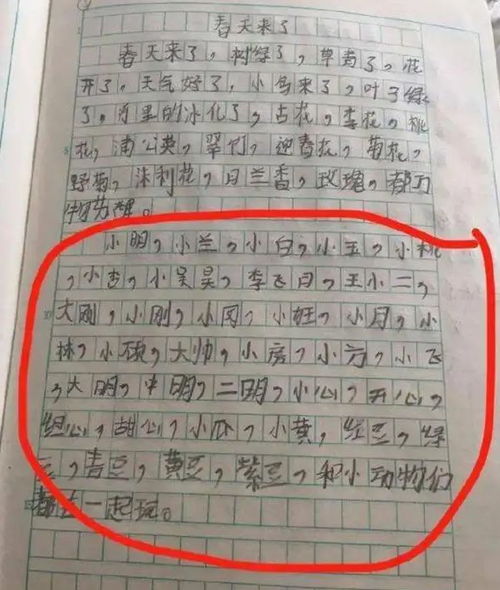 春天来了
春天来了，树绿了，草青了，花
开了，天气好了，小鸟来了，叶子绿
了，河里的冰化了，杏花，李花，桃
花，蒲公英，翠竹，迎春花，菊花，
野菊，茉利花，日兰香，玫瑰，都万
物苏醒。
小明，小兰，小白，小玉，小桃
，小杏，小昊昊，李飞月，王小二，
大刚，小刚，小冈，小旺，小月，小
林，小硕，大帅，小房，小方，小飞
，大明，中明，二明，小心，开心，
甜心，小瓜，小黄，红豆，绿
豆，青豆，黄豆，紫豆，和小动物们
都在一起玩。